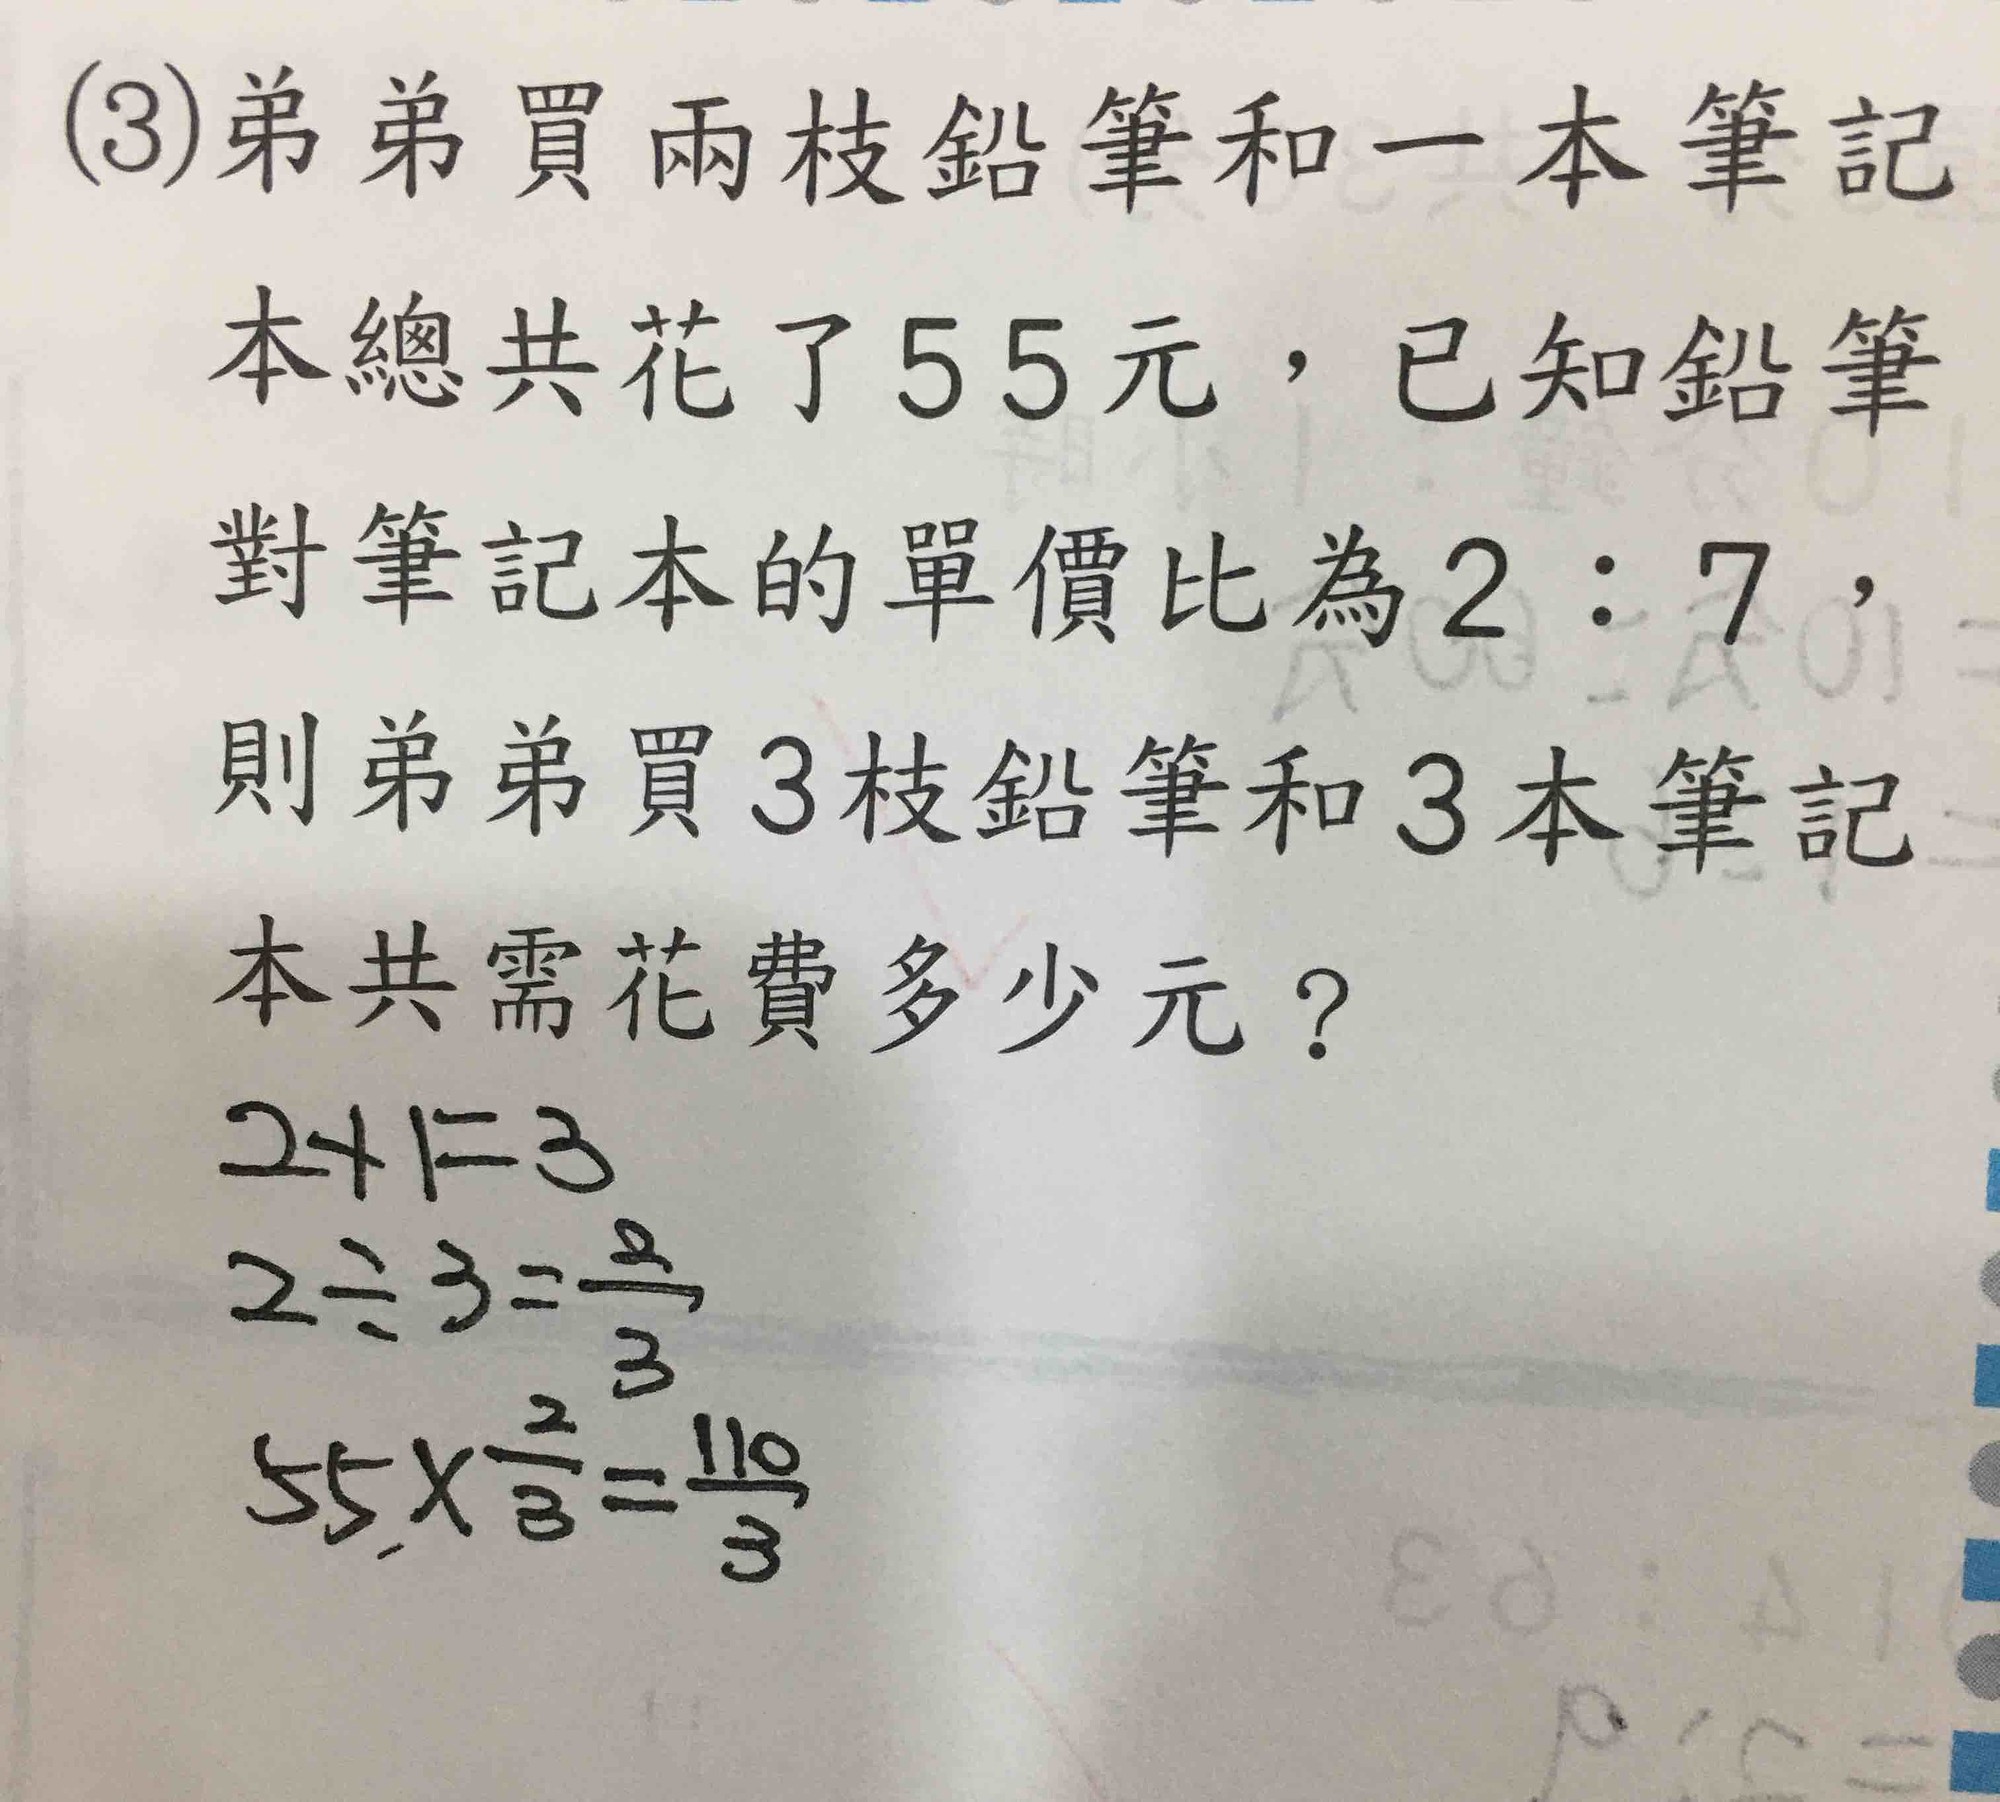 (3)弟弟買兩枝鉛筆和一本筆記
本總共花了55元，已知鉛筆
對筆記本的單價比為2：7，
則弟弟買3枝鉛筆和3本筆記
本共需花費多少元？
2+1=3
2÷3=2/3
55×2/3=110/3